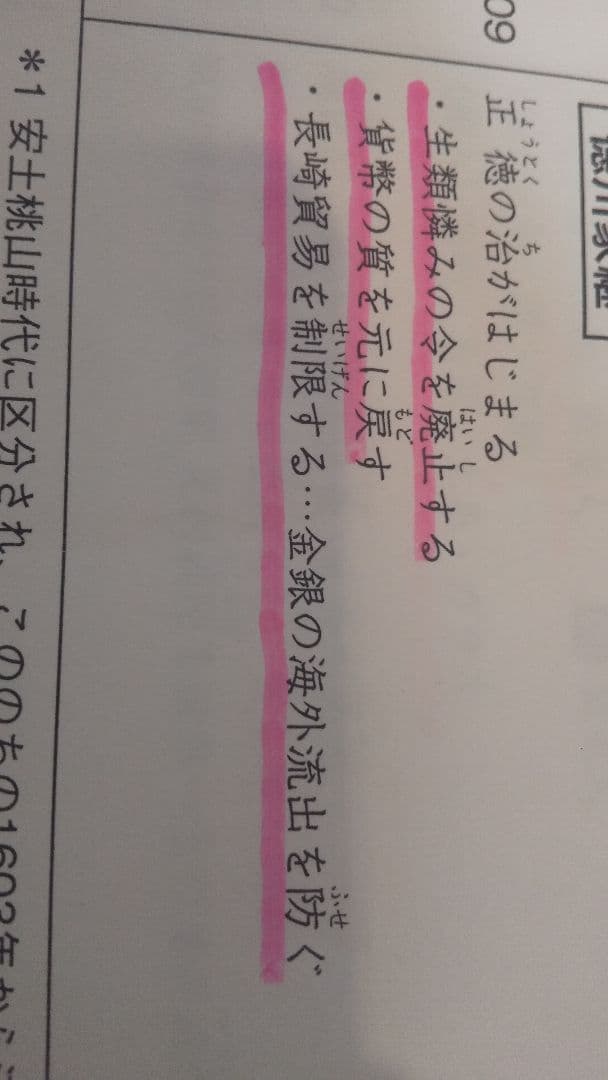 09
正徳の治がはじまる
・生類憐みの令を廃止する
・貨幣の質を元に戻す
・長崎貿易を制限する…金銀の海外流出を防ぐ
*1 安土桃山時代に区分され、こののちの1603年から